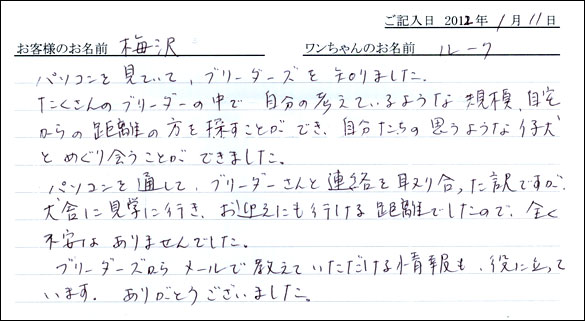 ご記入日 2012年 1月 11日
お客様のお名前 梅沢 ワンちゃんのお名前 ルーク
パソコンを見ていて、ブリーダーズを知りました。
たくさんのブリーダーの中で 自分の考えているような規模、自宅
からの距離の方を探すことができ、自分たちの思うような仔犬
とめぐり会うことができました。
パソコンを通して、ブリーダーさんと連絡を取り合った訳ですが、
犬舎に見学に行き、お迎えにも行ける距離でしたので、全く
不安はありませんでした。
ブリーダーズからメールで教えていただける情報も、役に立って
います。 ありがとうございました。